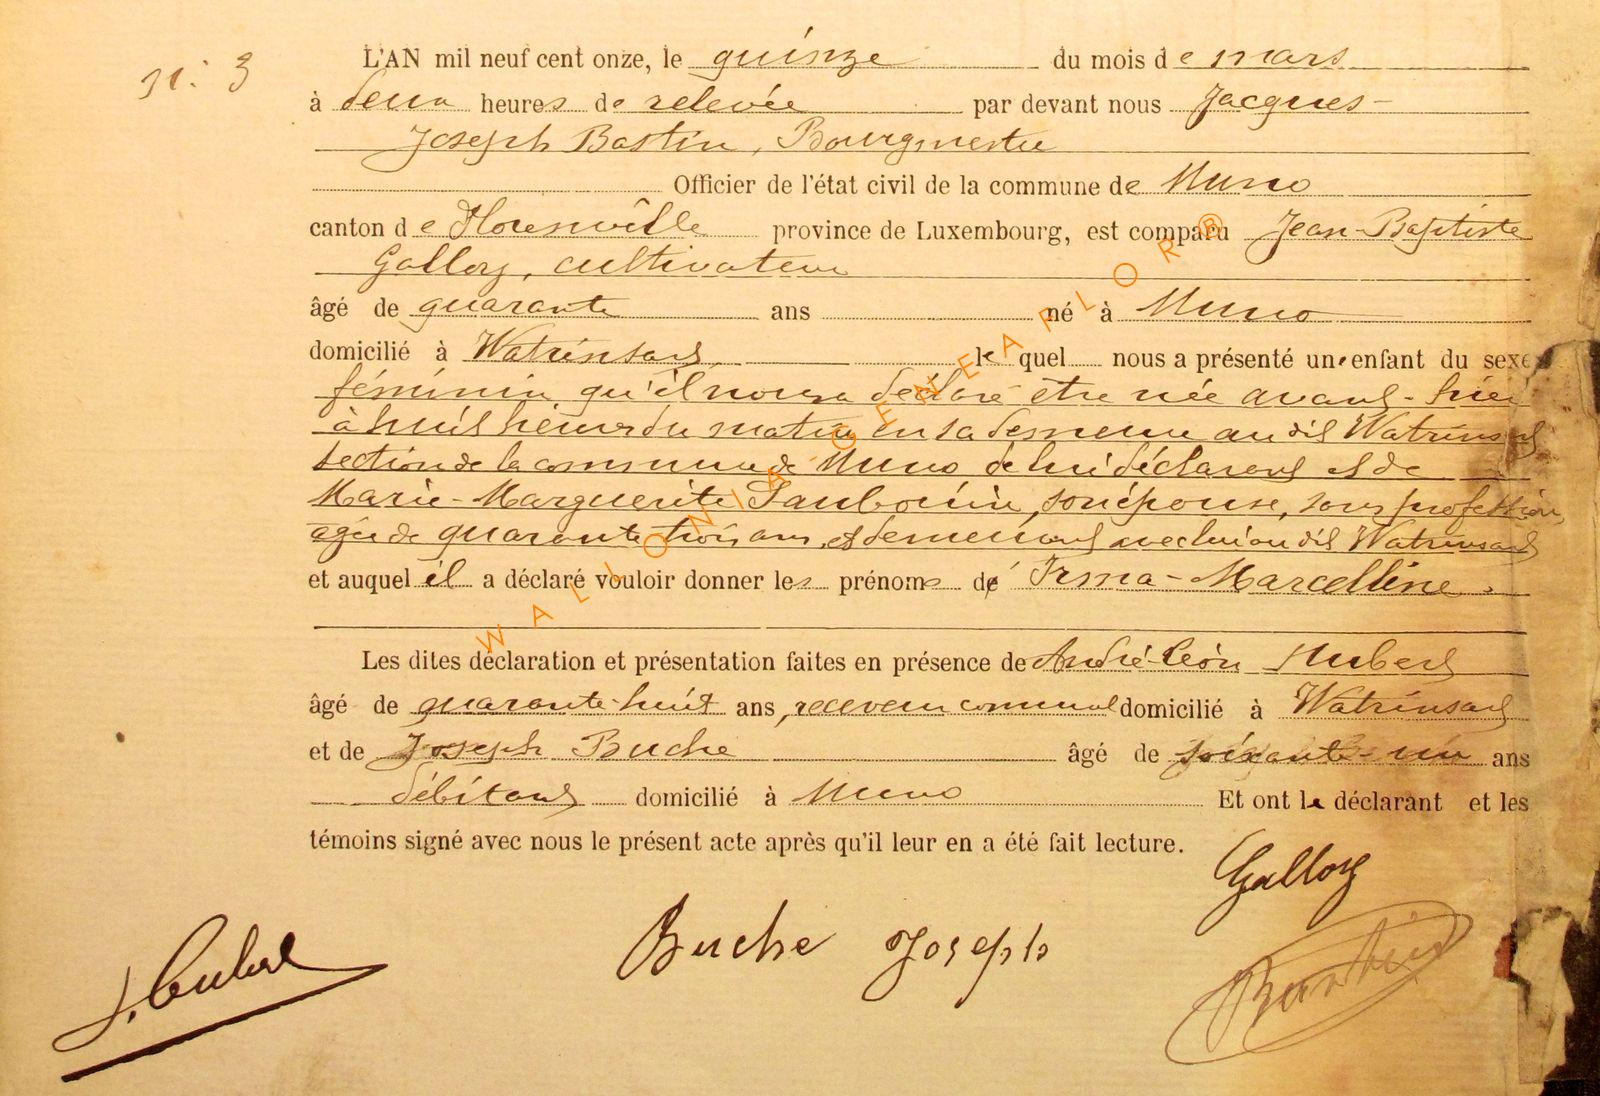 N: 3
L'AN mil neuf cent onze, le quinze du mois de mars
à deux heures de relevée par devant nous Jacques-
Joseph Bastin, Bourgmestre
Officier de l'état civil de la commune de Muno
canton de Florenville province de Luxembourg, est comparu Jean-Baptiste
Galloy, cultivateur
âgé de quarante ans né à Muno
domicilié à Watrinsart, lequel nous a présenté un enfant du sexe
féminin qu'il nous a déclaré être née avant-hier
à huit heures du matin en sa demeure au dit Watrinsart
section de la commune de Muno de lui déclarant et de
Marie-Marguerite son épouse, sans profession,
agée de quarante trois ans, et demeurant avec lui au dit Watrinsart
et auquel il a déclaré vouloir donner les prénoms de Irma-Marcelline.
Les dites déclaration et présentation faites en présence de André-Léon Hubert
âgé de quarante-huit ans, receveur communal domicilié à Watrinsart
et de Joseph Buche âgé de soixante-un ans
débitant domicilié à Muno Et ont le déclarant et les
témoins signé avec nous le présent acte après qu'il leur en a été fait lecture.
Galloy
Buche Joseph
Bastin
WALLONIA-GENEAFLOR®